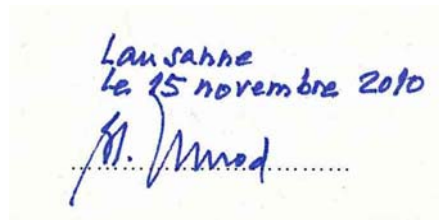 Lausanne
le 15 novembre 2010